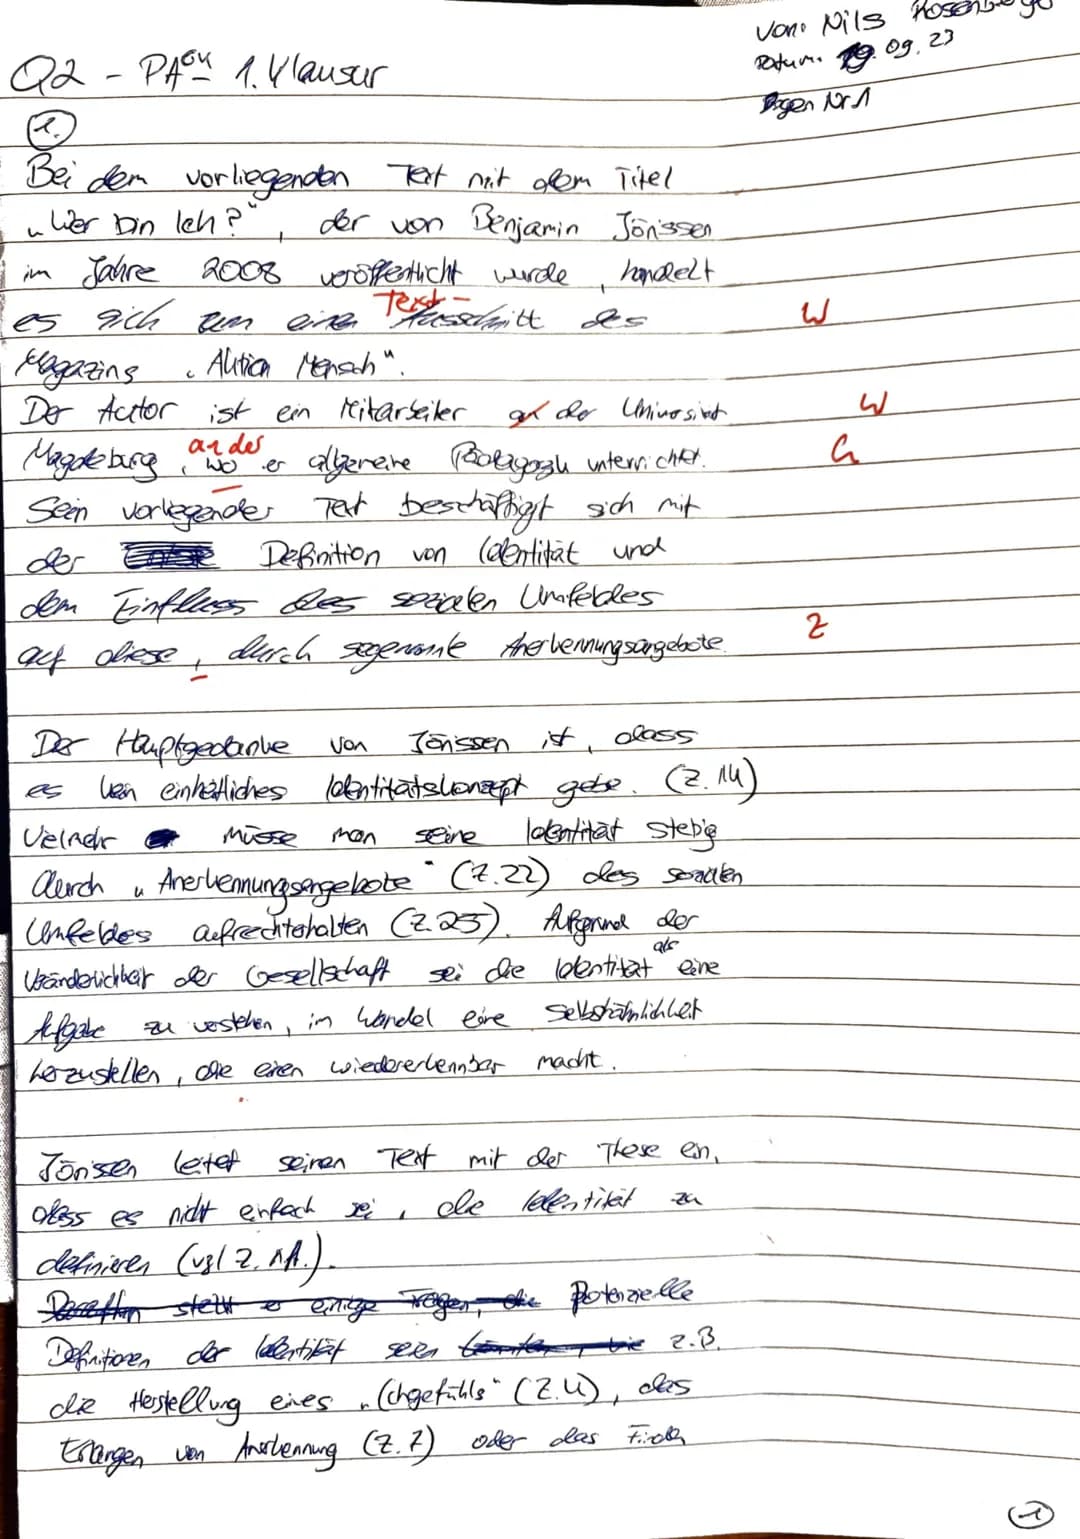 Von: Nils Rosenberger
Datum: 19.09.23
Bogen Nr. 1
Q2 - PA GK 1. Klausur
1.
Bei dem vorliegenden Text mit dem Titel
„Wer bin Ich?“, der von Benjamin Jörissen
im Jahre 2008 veröffentlicht wurde, handelt
es sich um einen Text- Ausschnitt des W
Magazins „Aktion Mensch“.
Der Autor ist ein Mitarbeiter an der Universität W
Magdeburg, wo an der er allgemeine Pädagogik unterrichtet. G
Sein vorliegender Text beschäftigt sich mit
der Definition von Identität und
dem Einfluss des sozialen Umfeldes
auf diese, durch sogenannte Anerkennungsangebote. Z
Der Hauptgedanke von Jörissen ist, dass
es kein einheitliches Identitätskonzept gebe. (Z. 14)
Vielmehr müsse man seine Identität stetig
durch „Anerkennungsangebote“ (Z.22) des sozialen
Umfeldes aufrechterhalten (Z.25). Aufgrund der
Veränderlichkeit der Gesellschaft sei die Identität als eine
Aufgabe zu verstehen, im Wandel eine Selbstähnlichkeit
herzustellen, die einen wiedererkennbar macht.
Jörissen leitet seinen Text mit der These ein,
dass es nicht einfach sei, die Identität zu
definieren (vgl Z. 1f.).
Daraufhin stellt er einige Fragen, die Potenzielle
Definitionen der Identität seien z.B.
die Herstellung eines „Ichgefühls“ (Z.4), das
Erlangen von Anerkennung (Z.7) oder das Finden
1